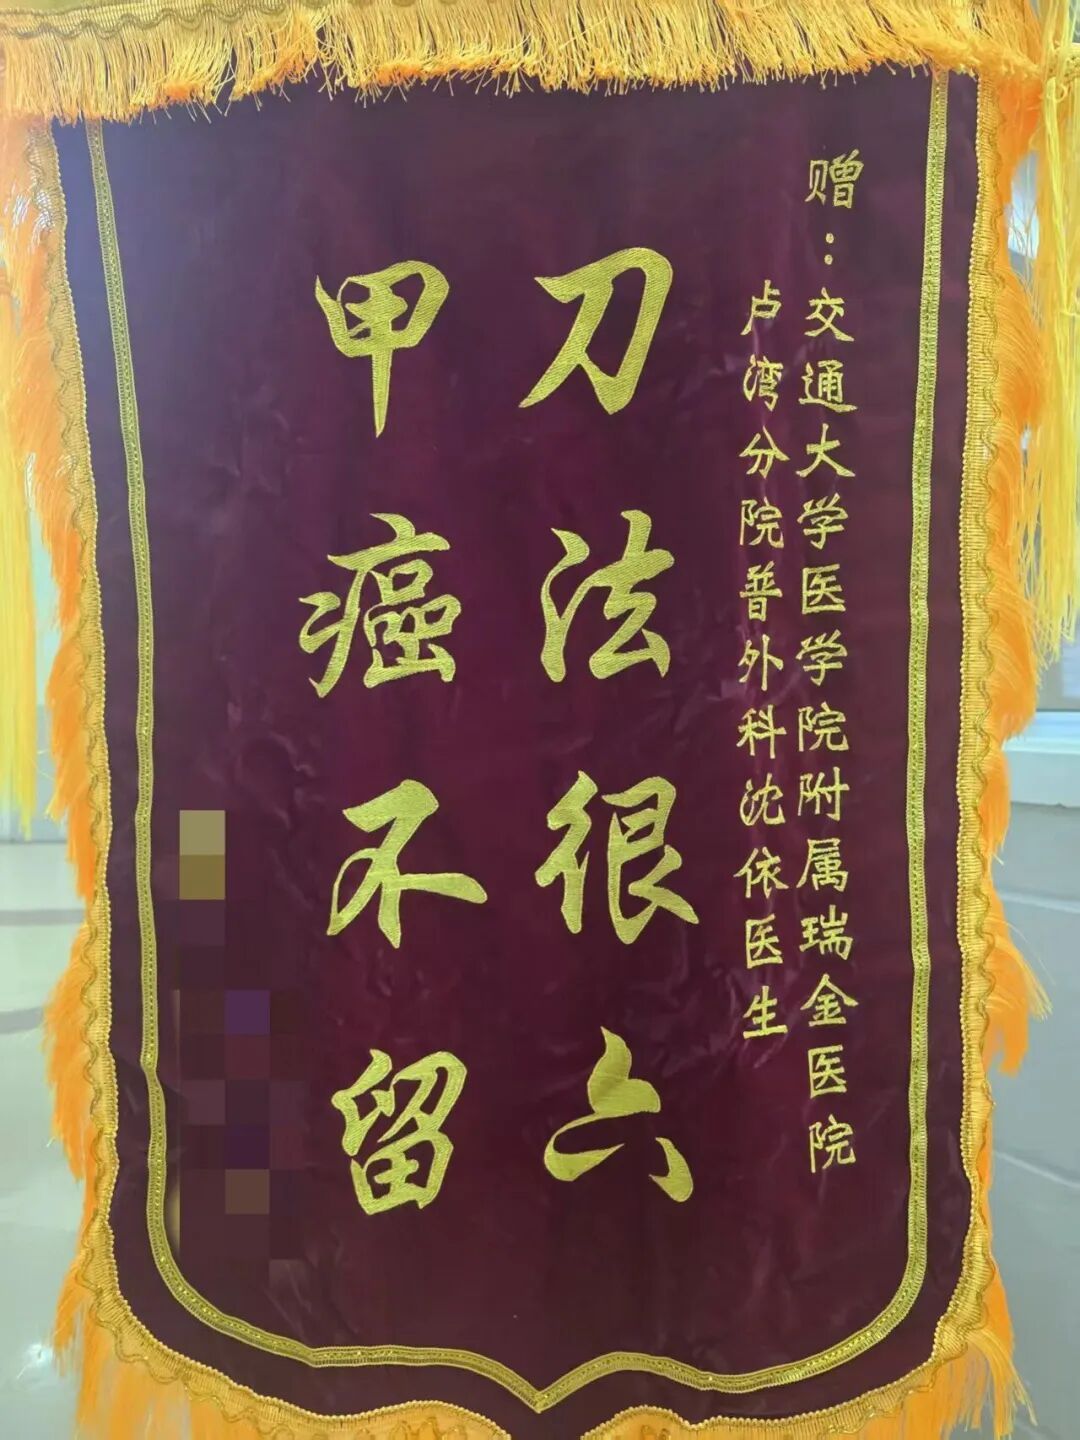 赠：交通大学医学院附属瑞金医院
卢湾分院普外科沈依医生
刀法很六
甲癌不留